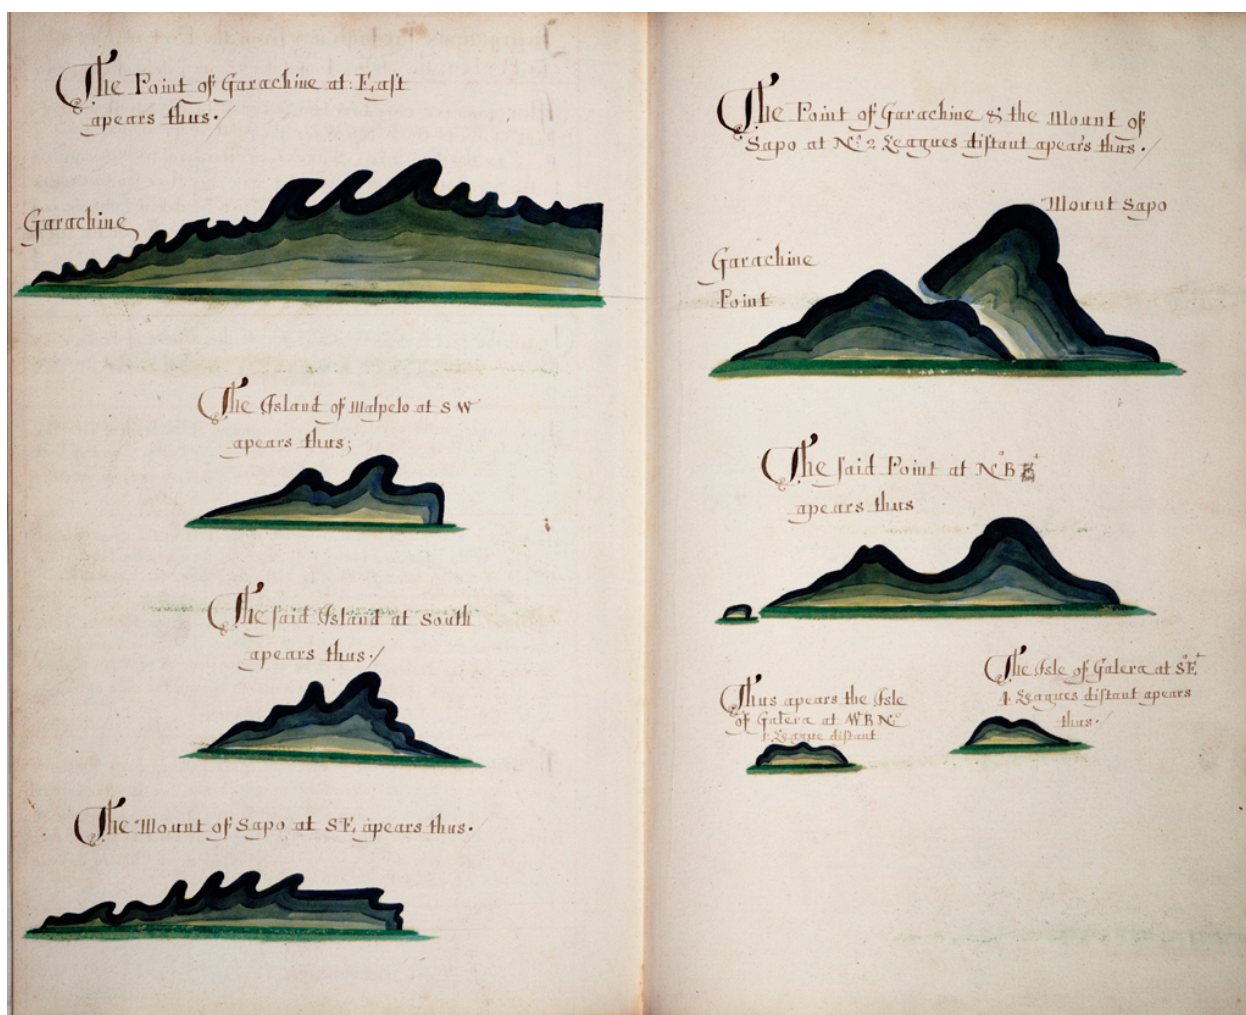 The Point of Garachine at: East
apears thus./
Garachine
The Island of Malpelo at SW
apears thus;
The said Island at South
apears thus./
The Mount of Sapo at SE, apears thus.
The Point of Garachine & the Mount of
Sapo at No: 2 Leagues distant apears thus./
Mount Sapo
Garachine
Point
The said Point at No B Et
apears thus
Thus apears the Isle
of Galera at WBNo
1: League distant
The Isle of Galera at SoEt
4 Leagues distant apears
thus./